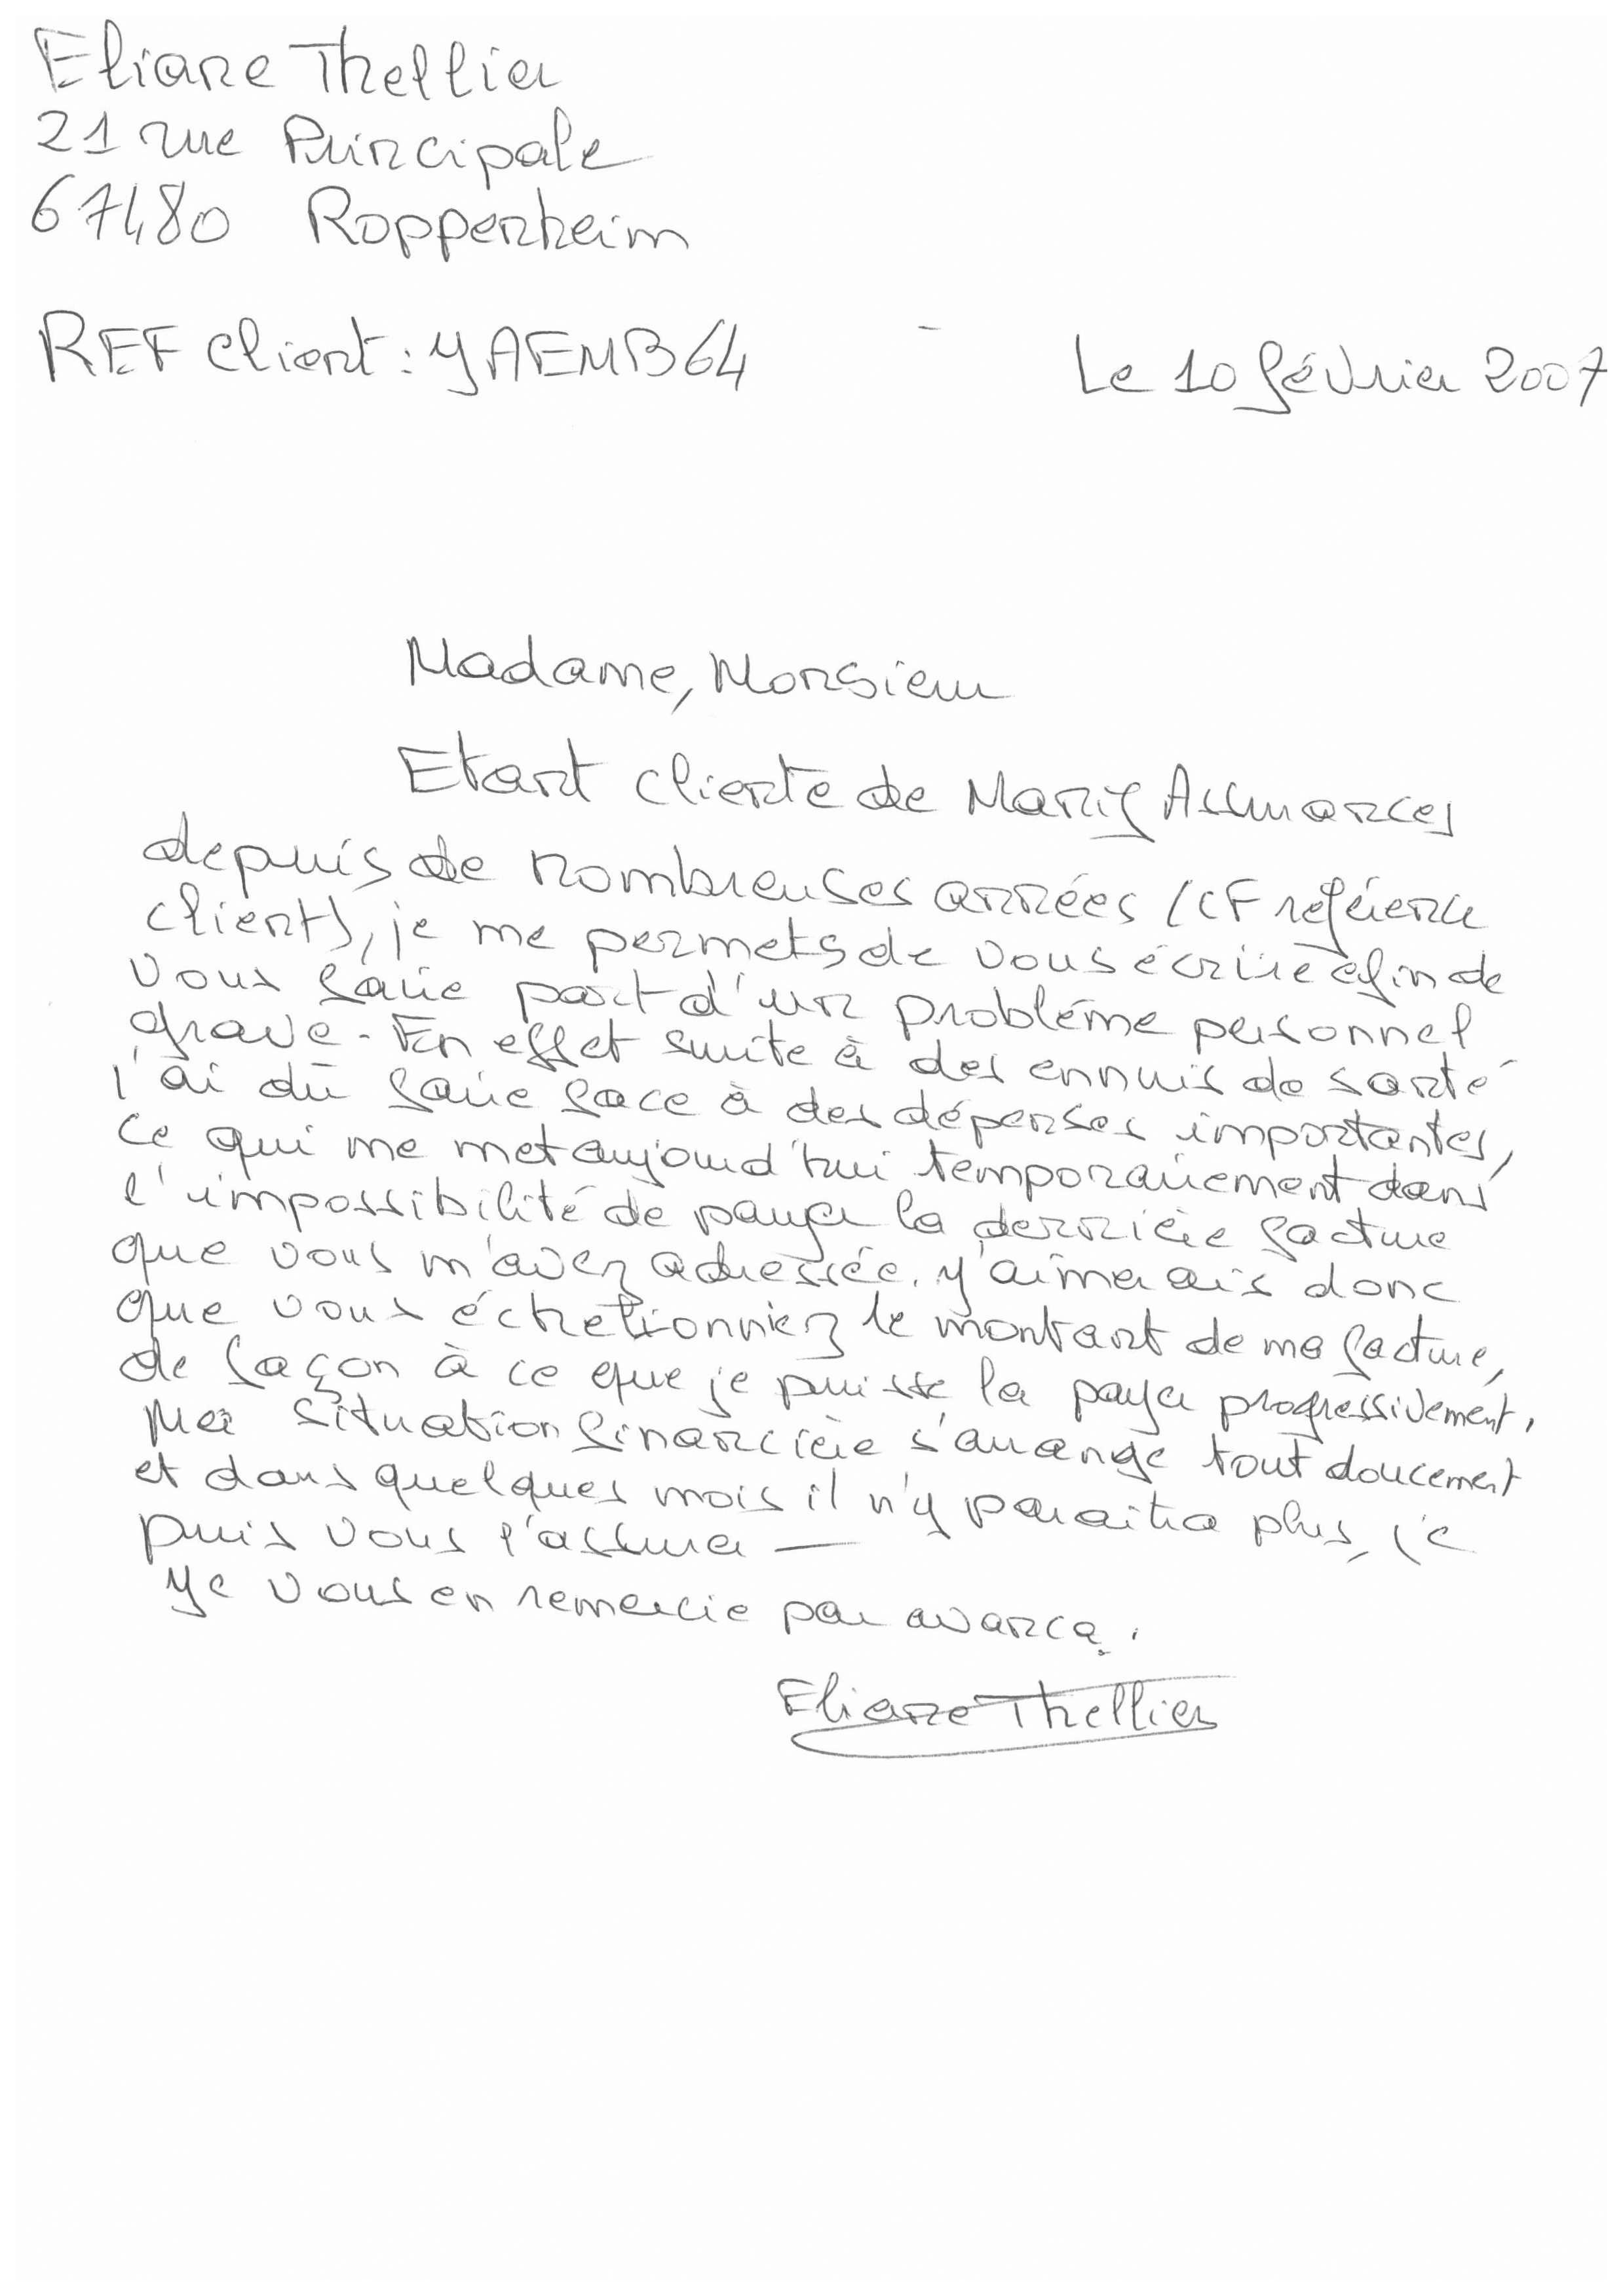 Eliane Thellier
21 rue Principale
67480 Roppenheim
REF client : YAEMB64
Le 10 février 2007
Madame, Monsieur
Etant cliente de Assurances
depuis de nombreuses années (CF référence
client), je me permets de vous écrire afin de
vous faire part d'un problème personnel
grave. En effet suite à des ennuis de santé
j'ai dû faire face à des dépenses importantes,
ce qui me met aujourd'hui temporairement dans
l'impossibilité de payer la dernière facture
que vous m'avez adressée. J'aimerais donc
que vous échelionniez le montant de ma facture,
de façon à ce que je puisse la payer progressivement.
Ma situation financière s'arrange tout doucement
et dans quelques mois il n'y paraitra plus, je
puis vous l'assurer —
Je vous en remercie par avance.
Eliane Thellier